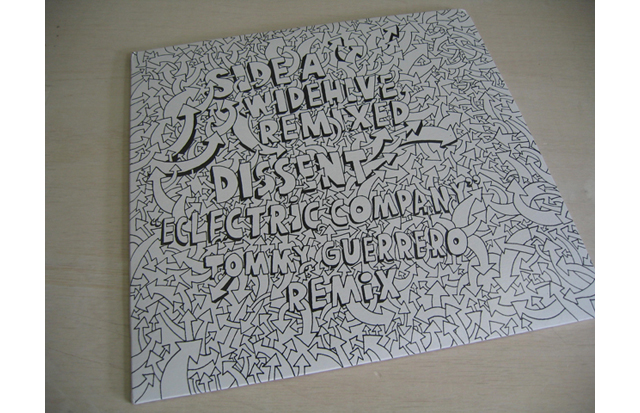 SIDE A
WIDEHIVE
REMIXED
DISSENT
"ECLECTRIC COMPANY"
TOMMY GUERRERO
REMiX